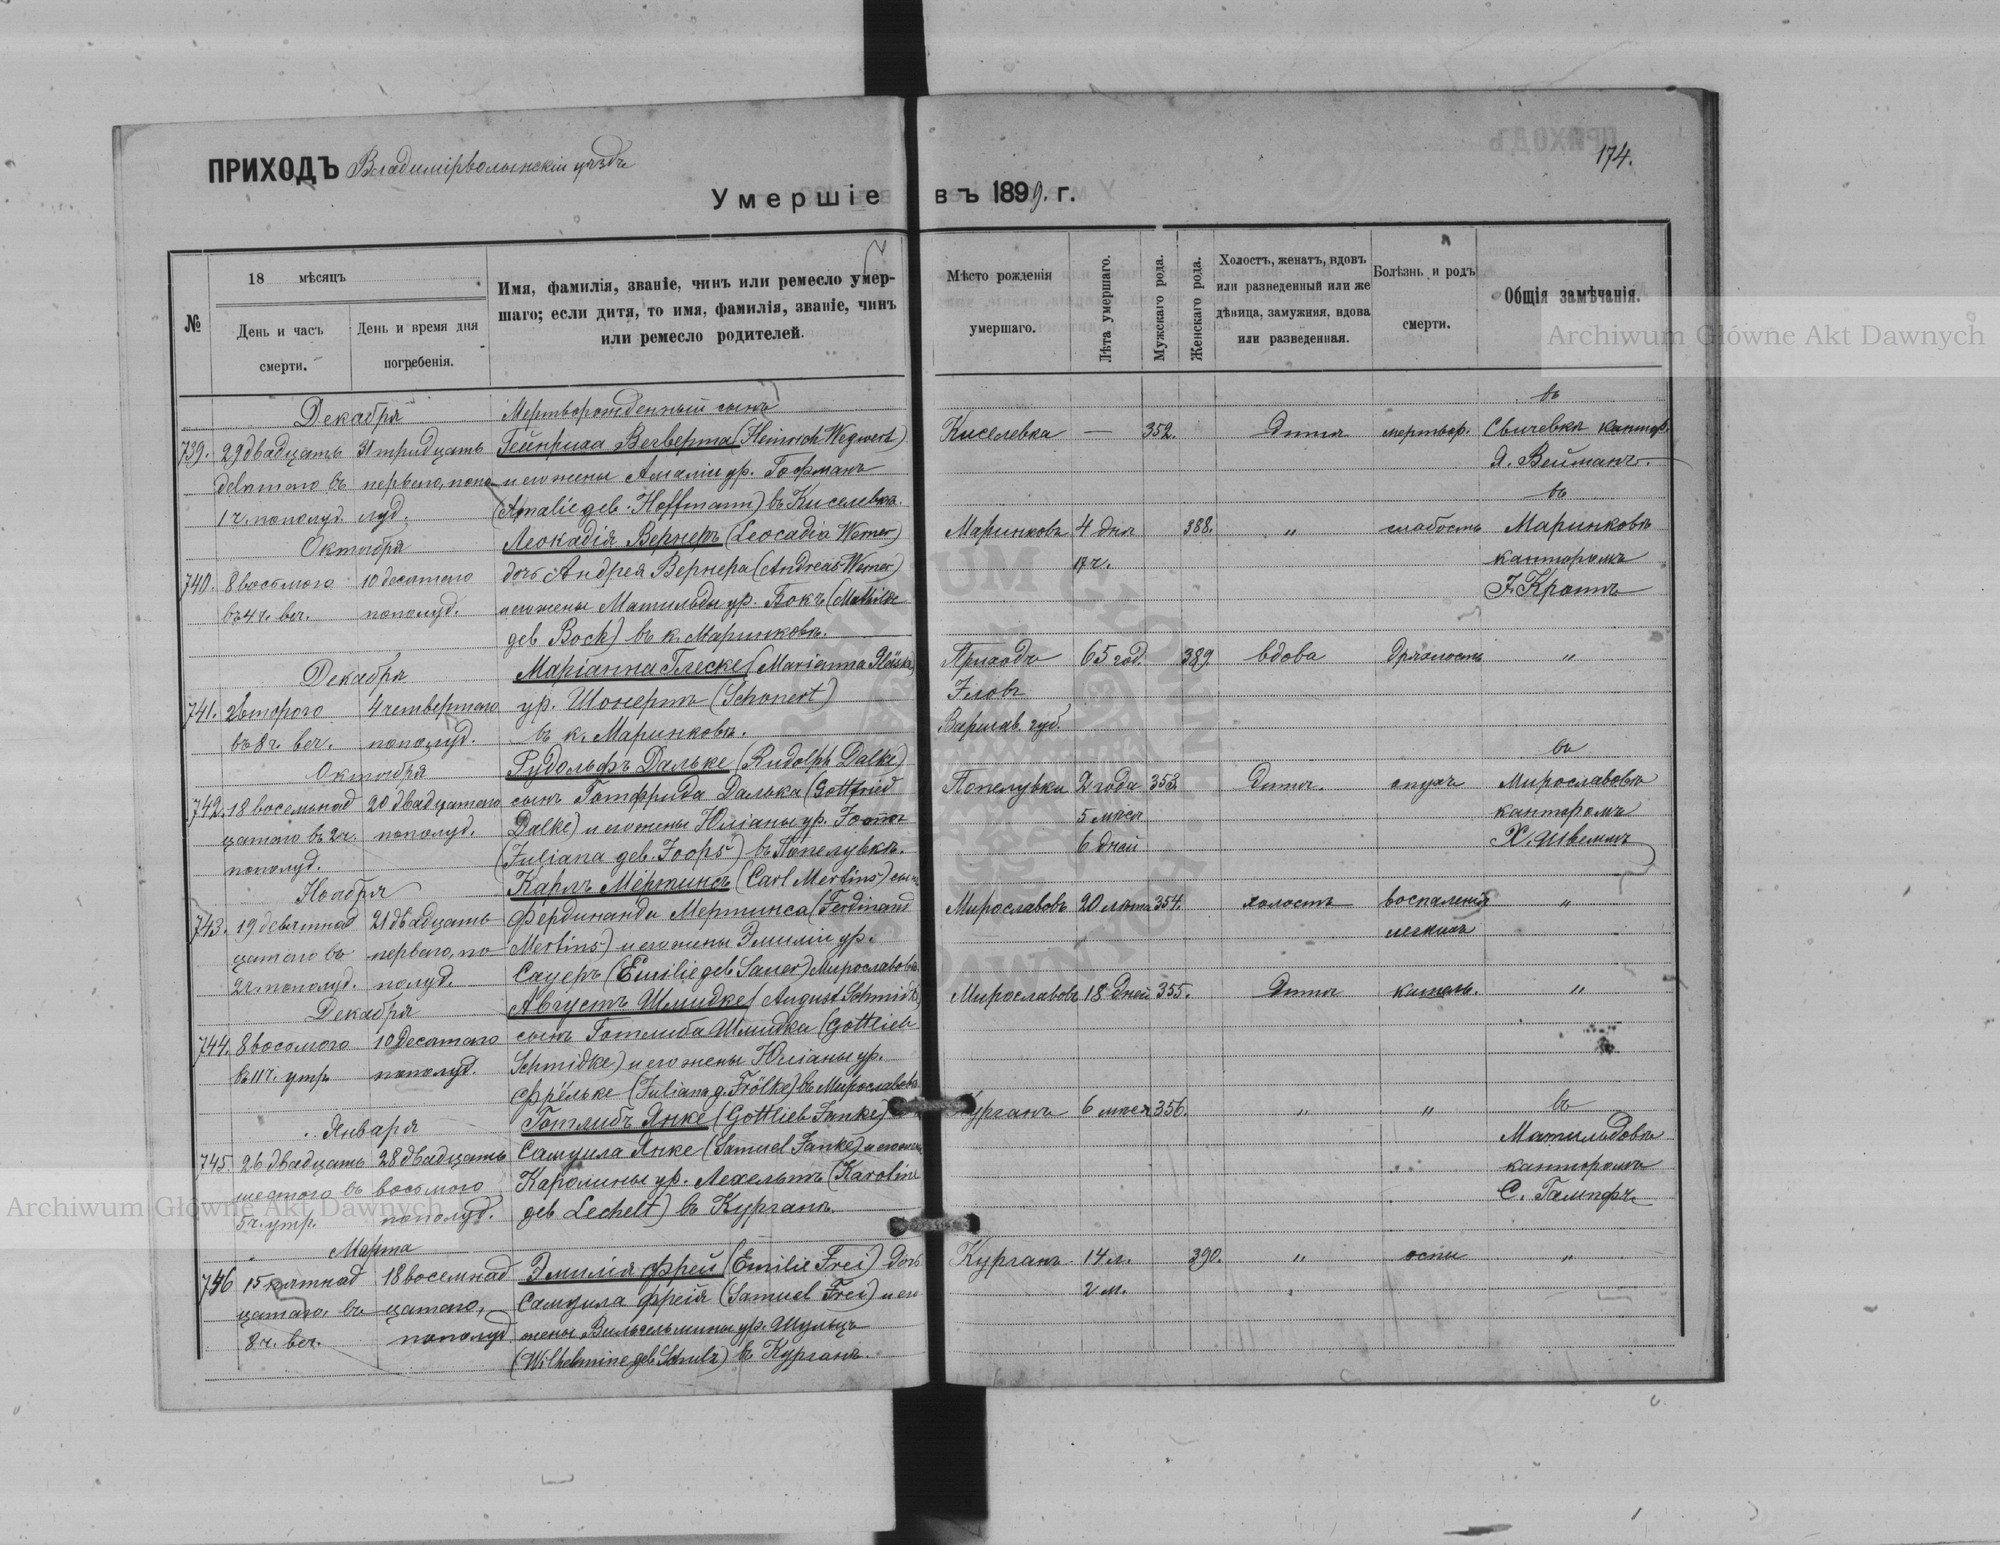 174.
ПРИХОДЪ Владимірволынскій уѣздъ
Умершіе въ 1899. г.
№
18 мѣсяцъ
День и часъ смерти.
День и время дня погребенія.
Имя, фамилія, званіе, чинъ или ремесло умер-
шаго; если дитя, то имя, фамилія, званіе, чинъ
или ремесло родителей.
Мѣсто рожденія умершаго.
Лѣта умершаго.
Мужскаго рода.
Женскаго рода.
Холостъ, женатъ, вдовъ
или разведенный или же
дѣвица, замужняя, вдова
или разведенная.
Болѣзнь и родъ смерти.
Общія замѣчанія.
Archiwum Główne Akt Dawnych
Декабря Мертворожденный сынъ въ
739. 29 двадцать 31 тридцать Гейнриха Вегверта (Heinrich Wegwert) Киселевка — 352. Дитя мертвор. Свичевкѣ кантор.
девятаго въ перваго, попо- и его жены Амаліи ур. Гофманъ Я. Вейманъ.
1 ч. пополуд. луд. (Amalie geb. Hoffmann) въ Киселевкѣ. въ
Октября Леокадія Вернеръ (Leocadia Werner) Маринковъ 4 дня 388. " слабость Маринковѣ
740. 8 восьмого 10 десятаго дочь Андрея Вернера (Andreas Werner) 17 ч. канторомъ
въ 4 ч. веч. пополуд. и его жены Матильды ур. Бокъ (Mathilde
geb. Bock) въ к. Маринковѣ.
Декабря Маріанна Плеске (Marianna Pläske) Приходъ 65 год. 389 вдова Дряхлость "
741. 2 второго 4 четвертаго ур. Шонертъ (Schonert) Иловъ
въ 8 ч. веч. пополуд. въ к. Маринковѣ. Варшав. губ.
Октября Рудольфъ Дальке (Rudolph Dalke) въ
742. 18 восемьнад 20 двадцатаго сынъ Готфрида Далька (Gottfried Попелувка 2 года 353. Дитя. опухъ Мирославовѣ
цатаго въ 2 ч. пополуд. Dalke) и его жены Юліаны ур. 5 мѣся канторомъ
пополуд. (Juliana geb. Joops) въ Попелувкѣ. 6 дней
Ноября Карлъ Мертинсъ (Carl Mertins) сынъ
743. 19 девятнад 21 двадцать Фердинанда Мертинса (Ferdinand Мирославовъ 20 лѣтъ 354. холостъ воспаленія "
цатаго въ перваго, по- Mertins) и его жены Эмиліи ур. легкихъ
2 ч. пополуд. полуд. Сауеръ (Emilie geb Sauer) Мирославовѣ
Декабря Августъ Шмидке (August Schmidke) Мирославовъ 18 дней 355. Дитя кашель. "
744. 8 восьмого 10 десятаго сынъ Готлиба Шмидки (Gottlieb
въ 11 ч. утр. пополуд. Schmidke) и его жены Юліаны ур.
Фрёльке (Juliana g. Frölke) въ Мирославовѣ
Января Готлибъ Янке (Gottlieb Janke) Курганъ 6 мѣся 356. " " въ
745. 26 двадцать 28 двадцать Самуила Янке (Samuel Janke) и его жены Матильдовкѣ
шестого въ восьмого Каролины ур. Лехельтъ (Karoline канторомъ
5 ч. утр. пополуд. geb Lechelt) въ Курганѣ. С. Гампфъ.
Archiwum Główne Akt Dawnych
Марта
746 15 пятнад 18 восемнад Эмилія Фрей (Emilie Frei) дочь Курганъ 14 л. 390. " оспы "
цатаго въ цатаго, Самуила Фрея (Samuel Frei) и его 2 м.
8 ч. веч. пополуд жены Вильгельмины ур. Шульцъ
(Wilhelmine geb Schulz) въ Курганѣ.